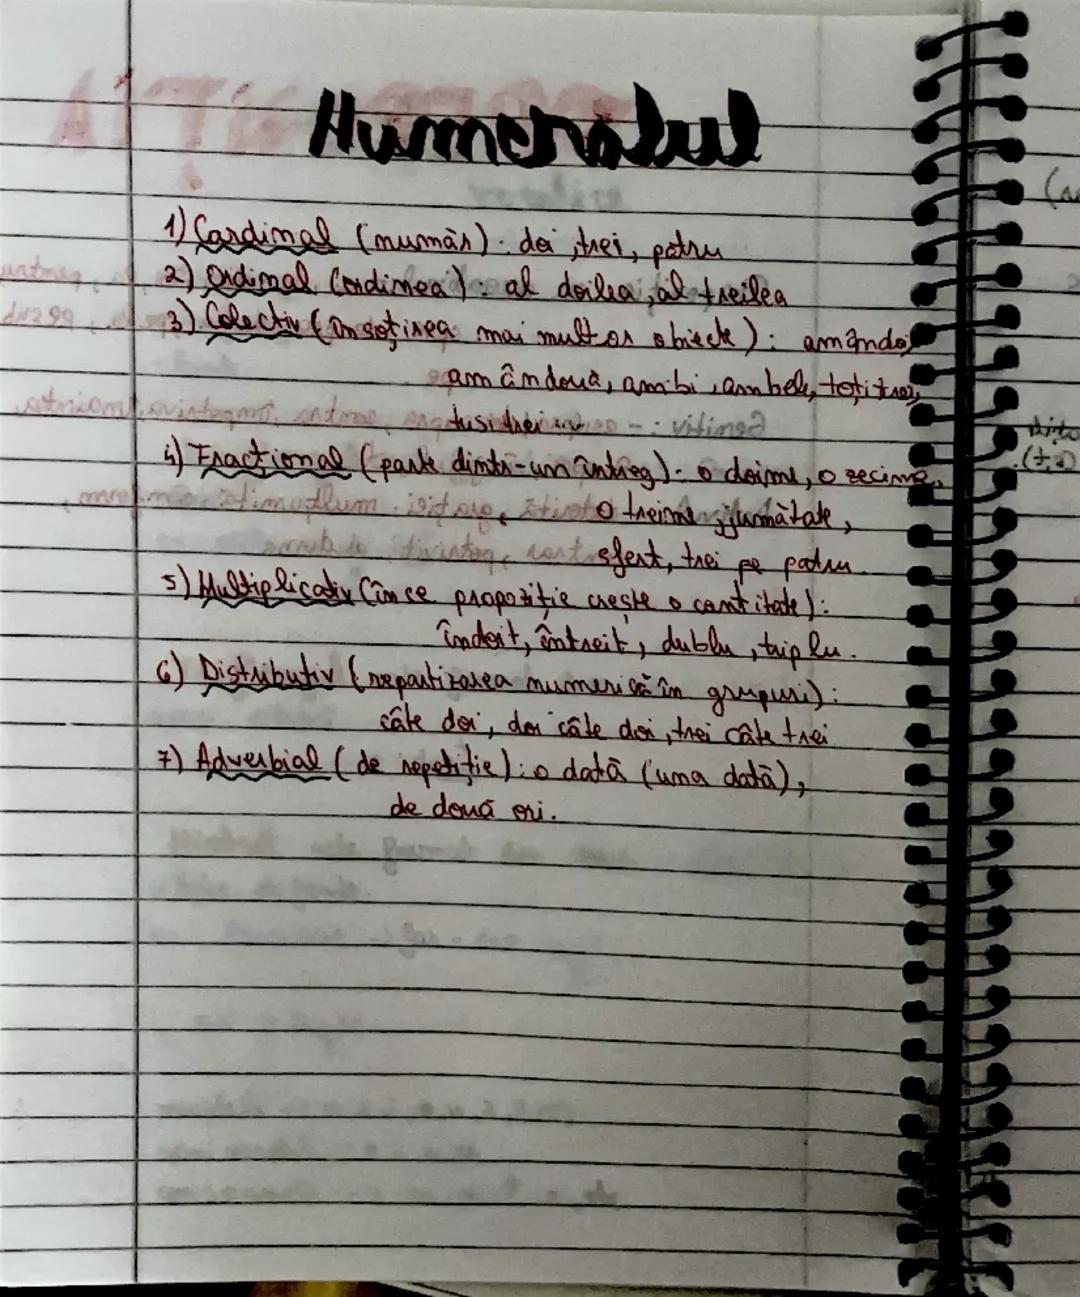 Numeralul
1) Cardinal (număr): doi, trei, patru
2) Ordinal (ordinea): al doilea, al treilea
3) Colectiv (însoțirea mai multor obiecte): amândoi,
amândouă, ambii, ambele, toți trei,
tusitrei
4) Fracțional (parte dintr-un întreg): o doime, o zecime,
o treime, jumătate,
sfert, trei pe patru.
5) Multiplicativ (în ce propoziție crește o cantitate):
îndoit, întreit, dublu, triplu.
6) Distributiv (repartizarea numerică în grupuri):
câte doi, doi câte doi, trei câte trei
7) Adverbial (de repetiție): o dată (una dată),
de două ori.